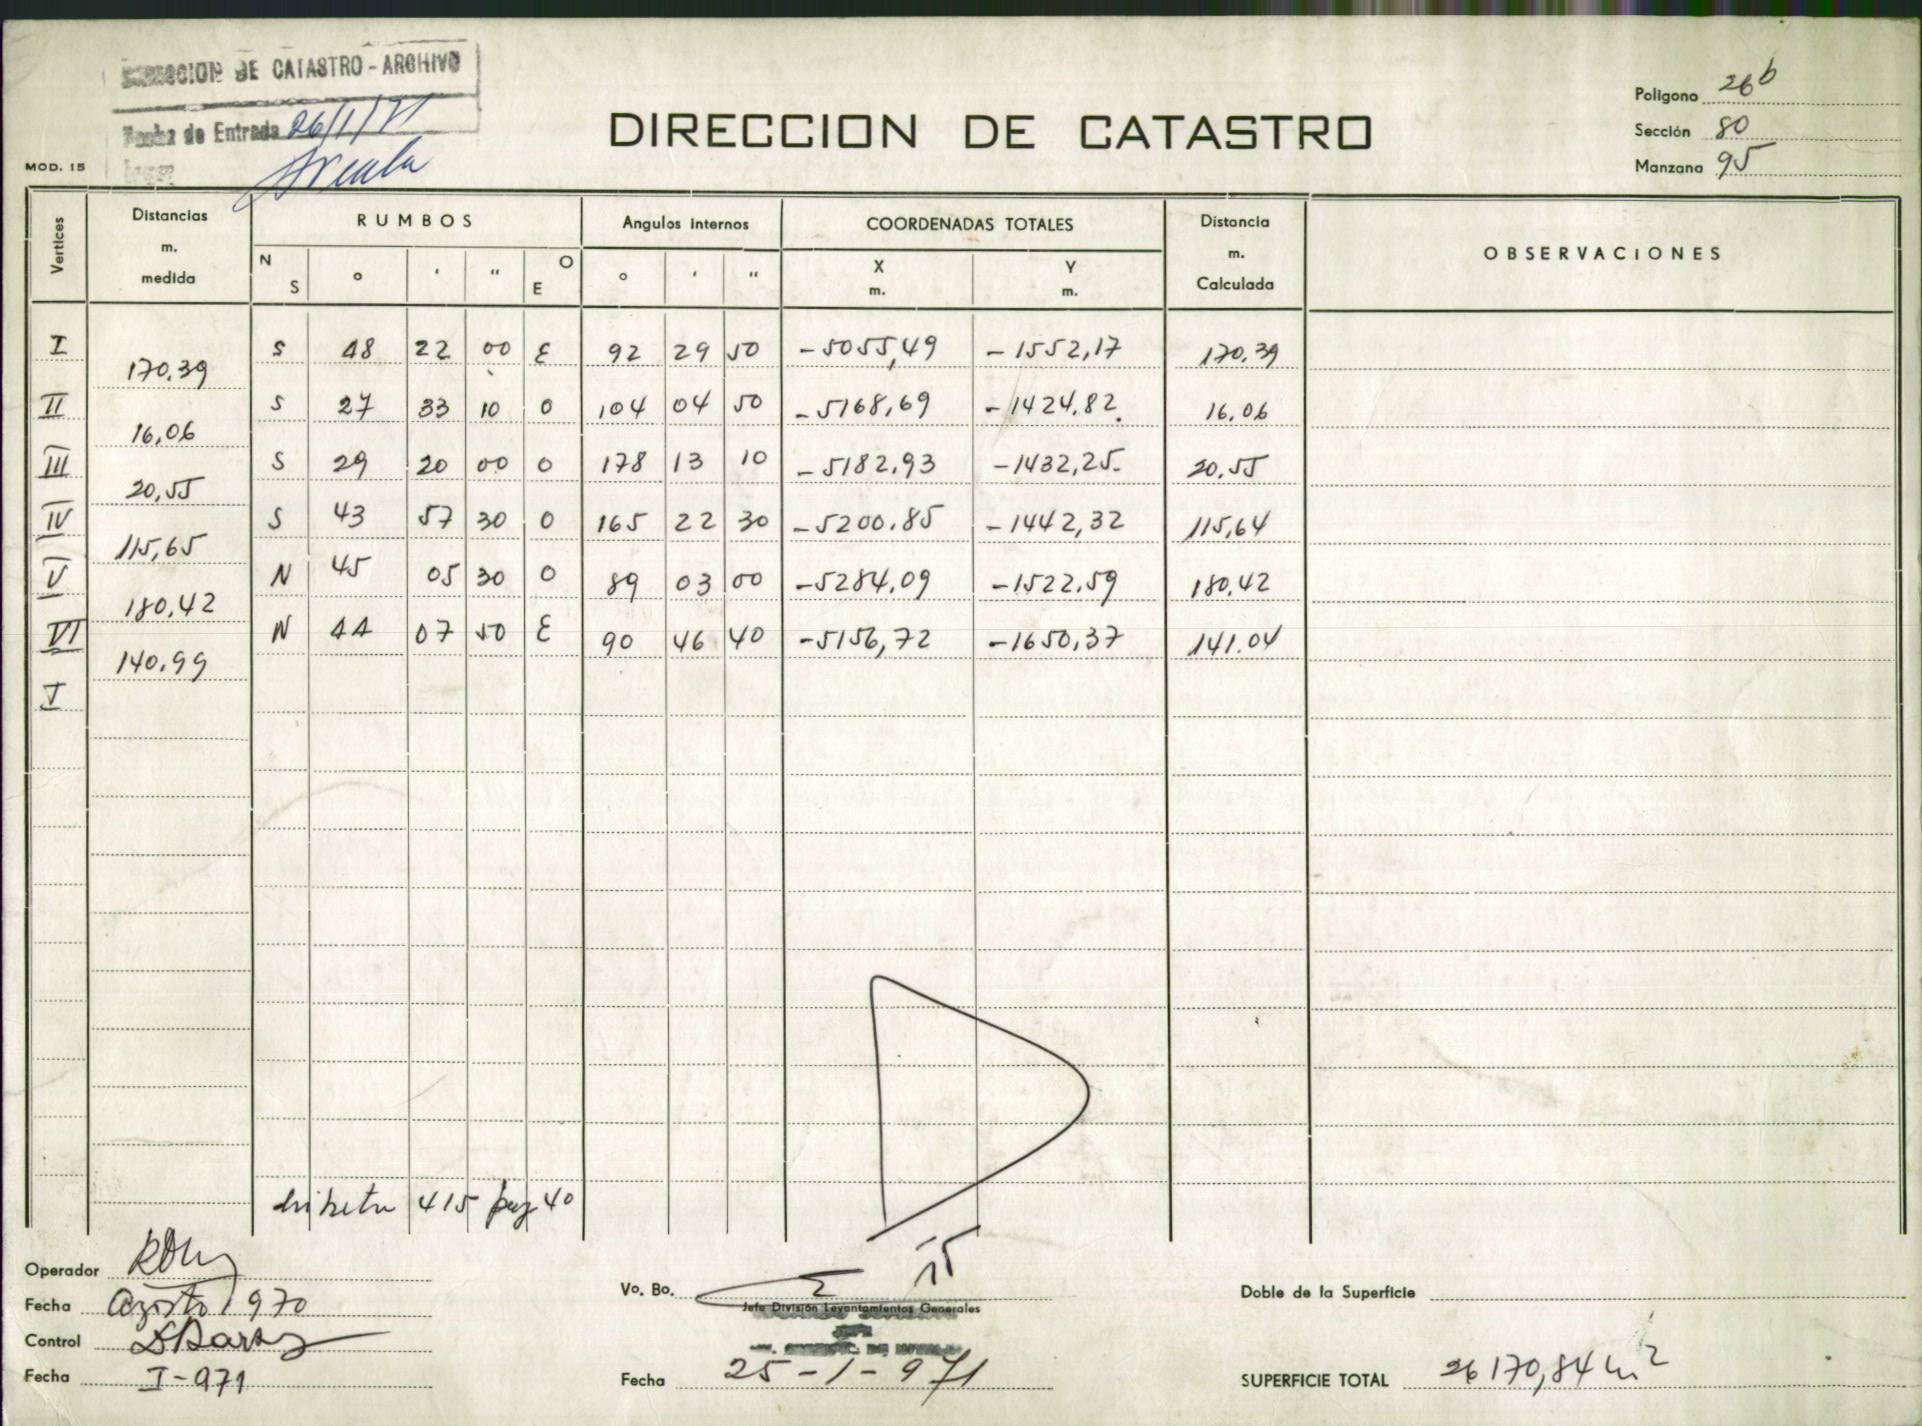 DIRECCION DE CATASTRO - ARCHIVO
Fecha de Entrada 26/1/71
MOD. 15
DIRECCION DE CATASTRO
Poligono 26 b
Sección 80
Manzana 95
Vertices Distancias m. medida RUMBOS Angulos internos COORDENADAS TOTALES Distancia m. Calculada OBSERVACIONES
N S ° ' " O E ° ' " X m. Y m.
I S 48 22 00 E 92 29 50 -5055,49 -1552,17 170.39
170.39
II S 27 33 10 O 104 04 50 -5168,69 -1424,82 16.06
16,06
III S 29 20 00 O 178 13 10 -5182,93 -1432,25 20.55
20,55
IV S 43 57 30 O 165 22 30 -5200,85 -1442,32 115,64
115,65
V N 45 05 30 O 89 03 00 -5284,09 -1522,59 180.42
180.42
VI N 44 07 50 E 90 46 40 -5156,72 -1650,37 141.04
140.99
I
libreta 415 pag 40
Operador
Fecha Agosto 1970
Control
Fecha I-971
Vo. Bo.
Jefe División Levantamientos Generales
Fecha 25-1-971
Doble de la Superficie
SUPERFICIE TOTAL 26170,84 m2